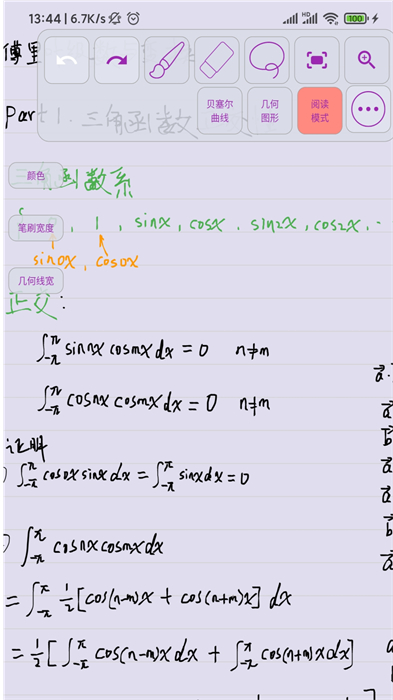 13:44 | 6.7K/s
HD
100
傅里
贝塞尔
曲线
几何
图形
阅读
模式
Part1. 三角函数
颜色
三角函数系
笔刷宽度
, 1 , sinx , cosx , sin2x , cos2x , ..
sin0x , cos0x
几何线宽
正交:
∫_{-π}^{π} sinnx cosmx dx = 0 n≠m
∫_{-π}^{π} cosnx cosmx dx = 0 n≠m
证明
) ∫_{-π}^{π} cos0x sinx dx = ∫_{-π}^{π} sinx dx = 0
) ∫_{-π}^{π} cosnx cosmx dx
= ∫_{-π}^{π} 1/2 [cos(n-m)x + cos(n+m)x] dx
= 1/2 [∫_{-π}^{π} cos(n-m)x dx + ∫_{-π}^{π} cos(n+m)x dx]
a⃗
a⃗
b⃗
a⃗
a⃗
b⃗
a⃗